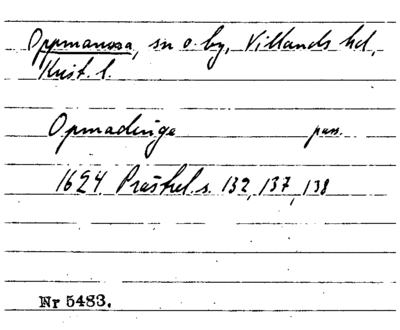 Oppmanna, sn o. by, Villands hd,
Krist. l.
Opmadinga pass.
1624 Prästrel. s. 132, 137, 138
Nr 5483.